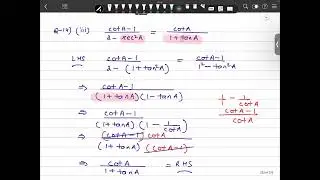 Q-14) (iii) cotA-1 / 2 - sec²A = cotA / 1+tanA
LHS cotA-1 / 2 - (1+tan²A) = cotA-1 / 1² - tan²A
⇒ cotA-1 / (1+tanA)(1-tanA)
1/1 - 1/cotA
⇒ cotA-1 / (1+tanA)(1 - 1/cotA)
cotA-1 / cotA
⇒ (cotA-1) cotA / (1+tanA) (cotA-1)
⇒ cotA / 1+tanA = RHS